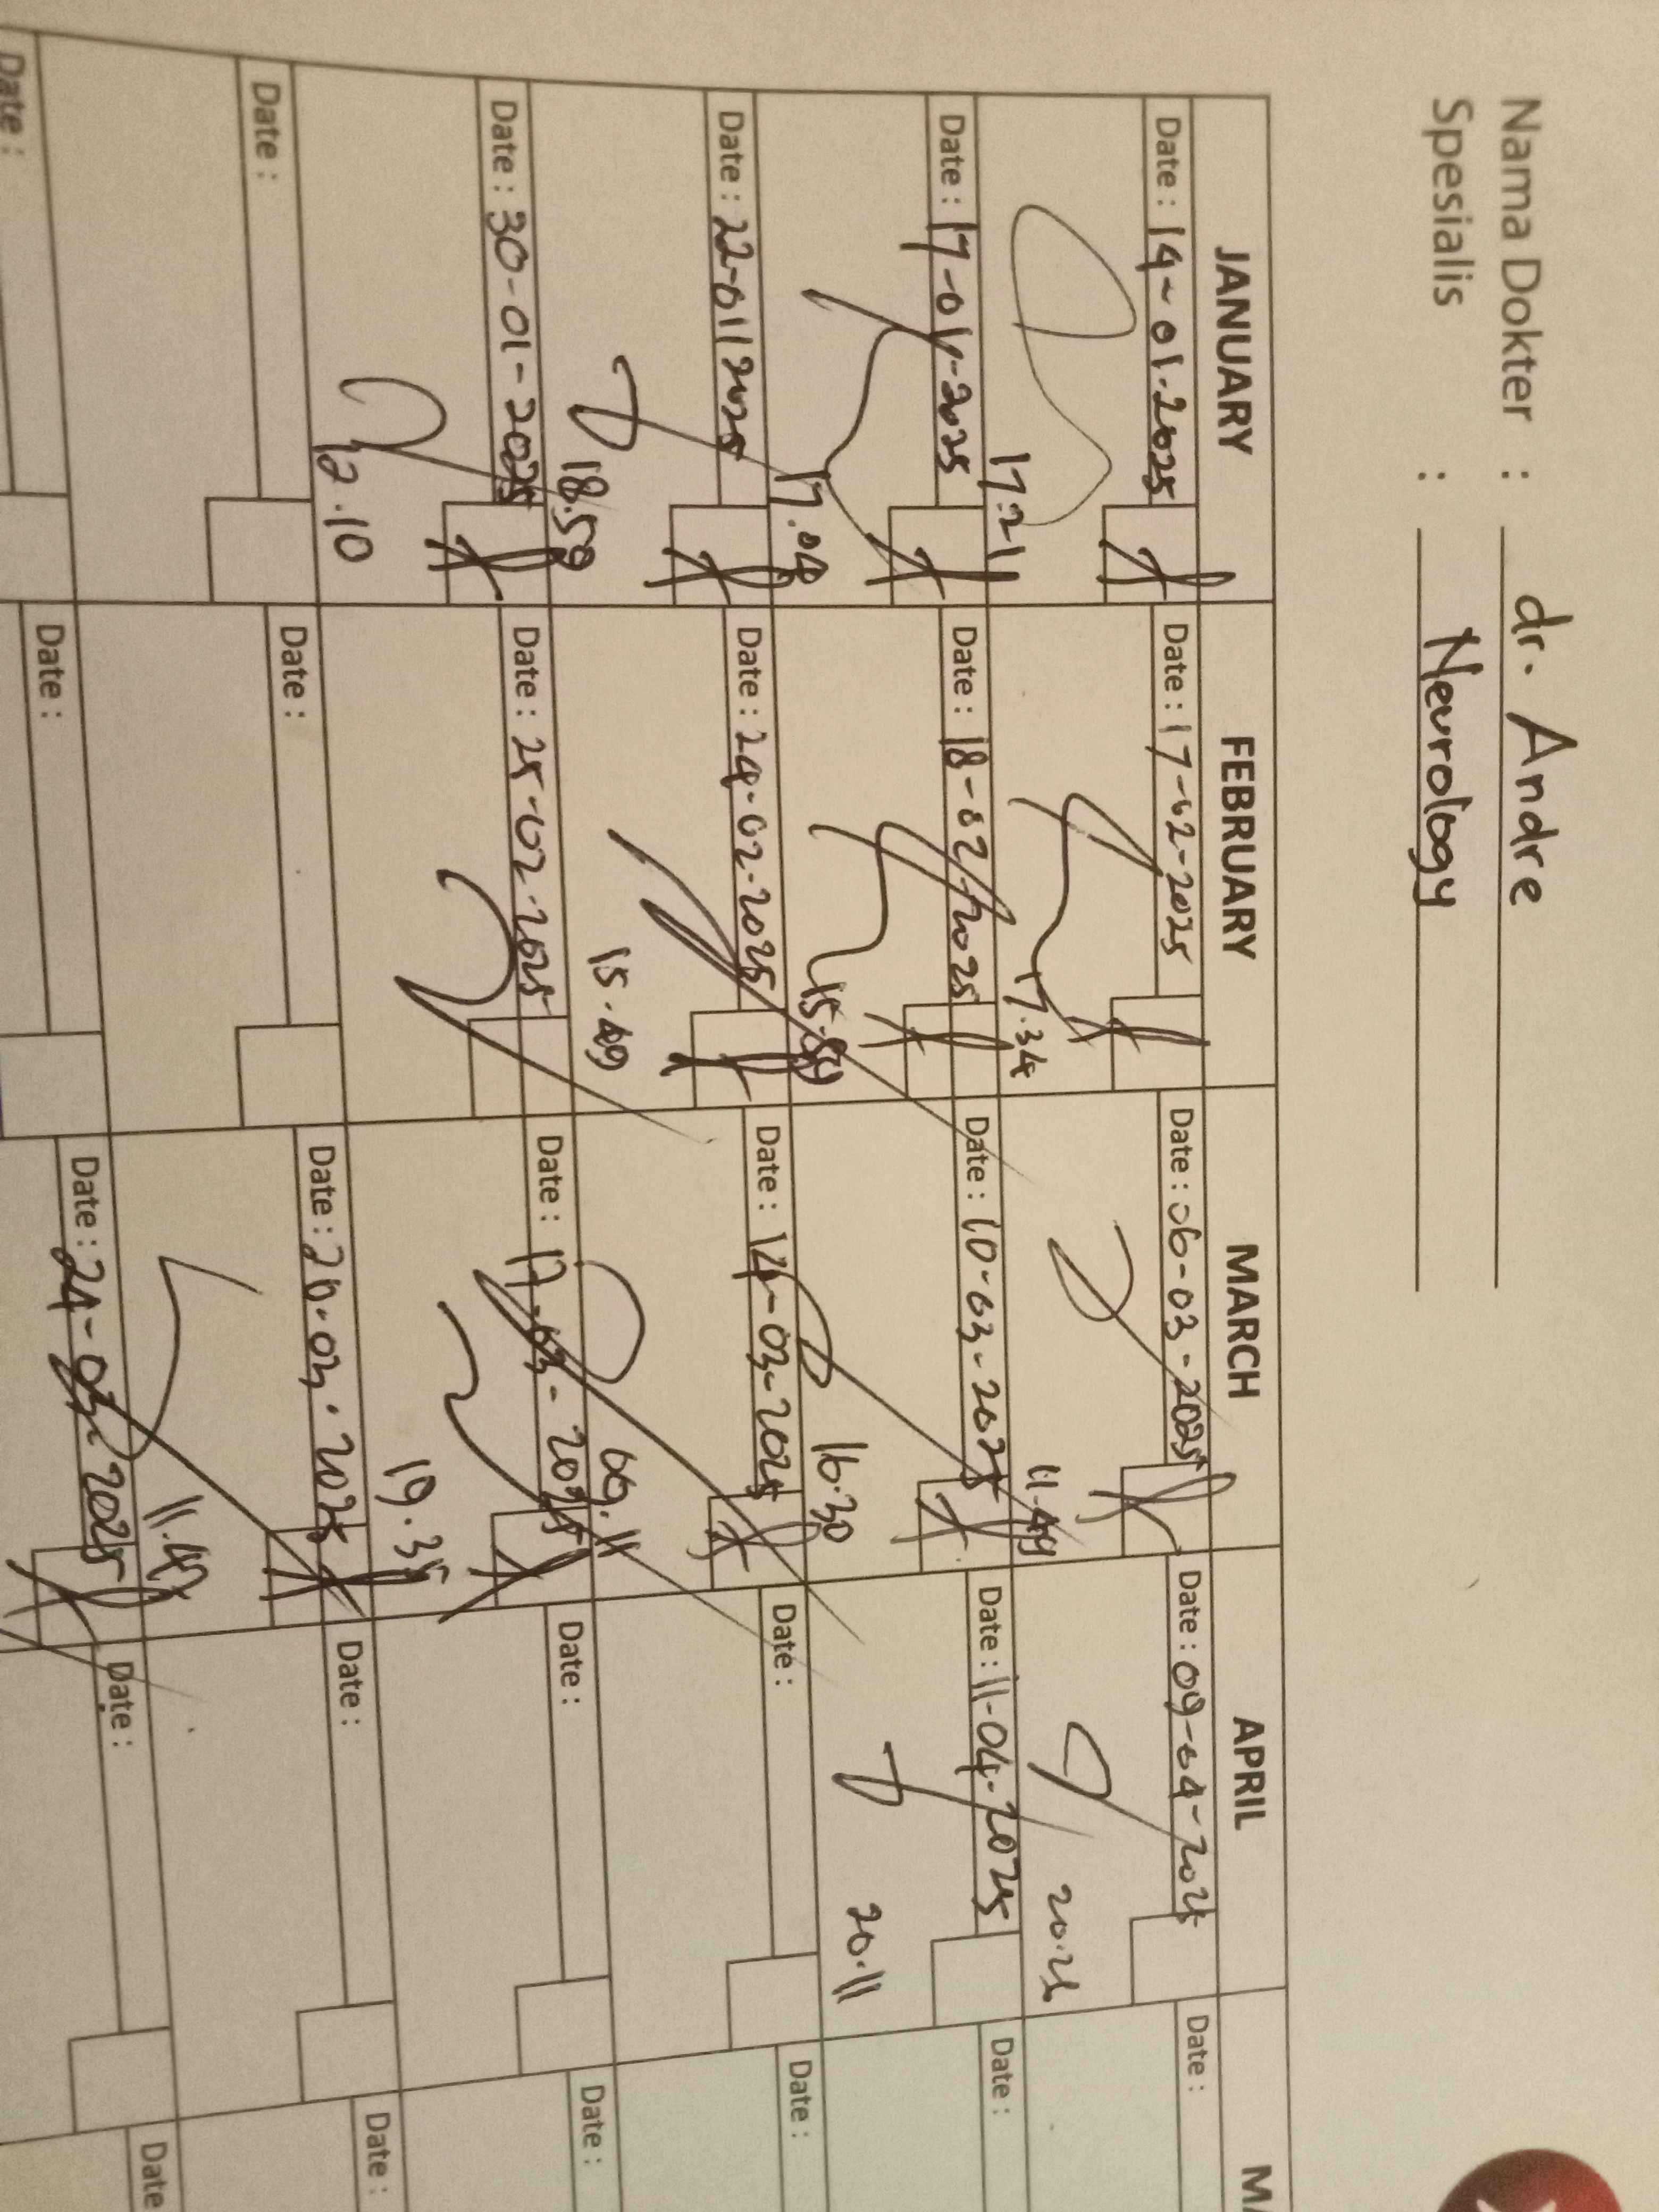 Nama Dokter : dr. Andre
Spesialis : Neurology
JANUARY FEBRUARY MARCH APRIL
Date : 14-01.2025 Date : 17-02-2025 Date : 06-03-2025 Date : 09-04-2025 Date :
17.21 17.34 11.49 20.25
Date : 17-01-2025 Date : 18-02/2025 Date : 10-03-2025 Date : 11-04-2025 Date :
17.04 16.30 20.11
Date : 22-01/2025 Date : 24-02-2025 Date : 14-03-2025 Date : Date :
18.58 15.49 09.11
Date : 30-01-2025 Date : 25-02-2025 Date : 17-03-2025 Date : Date :
12.10 19.35
Date : Date : Date : 20.03.2025 Date : Date :
11.47
Date : Date : Date : 24-03-2025 Date : Date